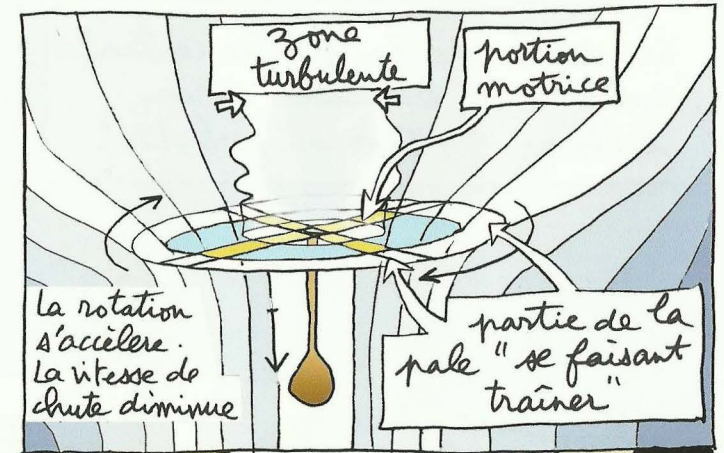 zone
turbulente
portion
motrice
La rotation
s'accélère.
La vitesse de
chute diminue
partie de la
pale "se faisant
traîner"